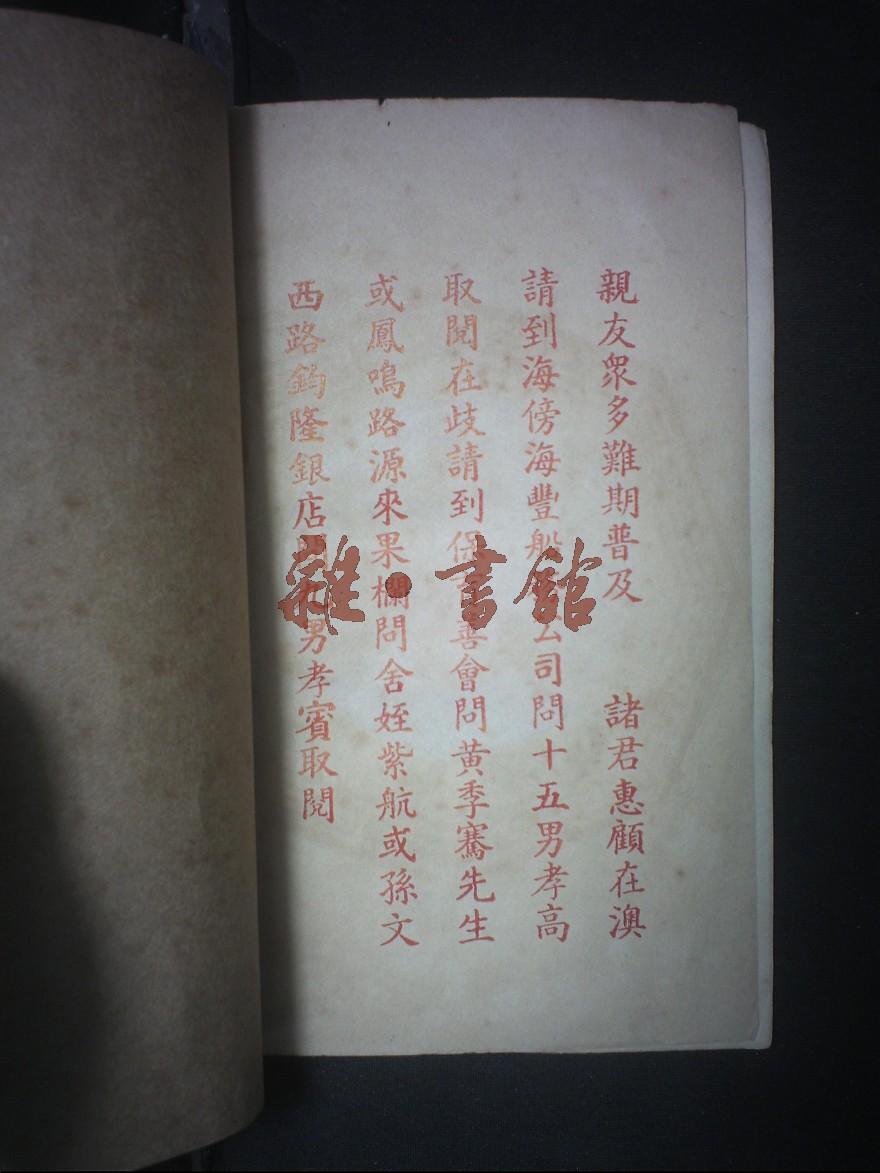 親友衆多難期普及 諸君惠顧在澳
請到海傍海豐船公司問十五男孝高
取閱在歧請到保善會問黃季騫先生
或鳳鳴路源來果欄問舍姪紫航或孫文
西路鈞隆銀店男孝賓取閱
雜·書館